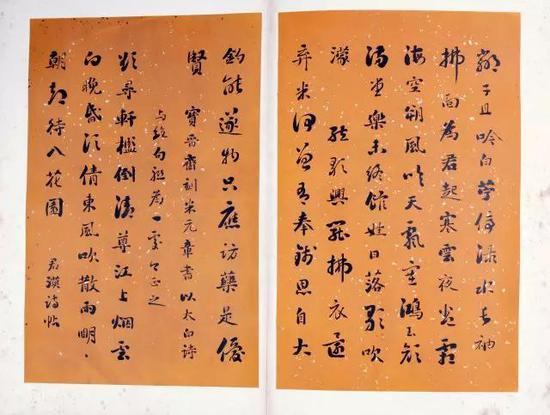 鄰子且吟白苧停渌水長袖
拂面為君起寒雲夜卷霜
海空朔風吹天飄塞鴻玉顏
滿堂樂未終館娃日落歌吹
濛 絃歌興罷拂衣還
弃米奉錢思自大
釣能遂物只應訪藥是優
賢 寶晉齋刻米元章書以太白詩
与致句聯為一處今正之
欲尋軒檻倒清尊江上烟雲
向晚昏須倩東風吹散雨明〻
朝却待入花園
君謨詩帖